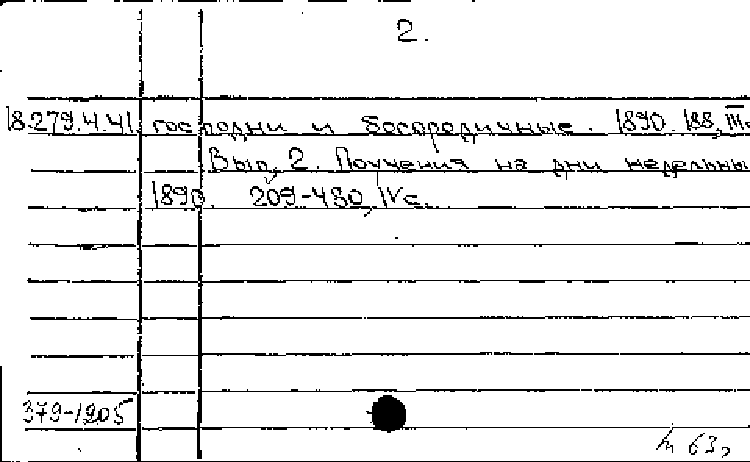 2.
18.279.4.41 господни и богородичные. 1890. 188, III с.
Вып. 2. Поучения на дни недельны
1890. 209-480, IV с.
379-1205
63